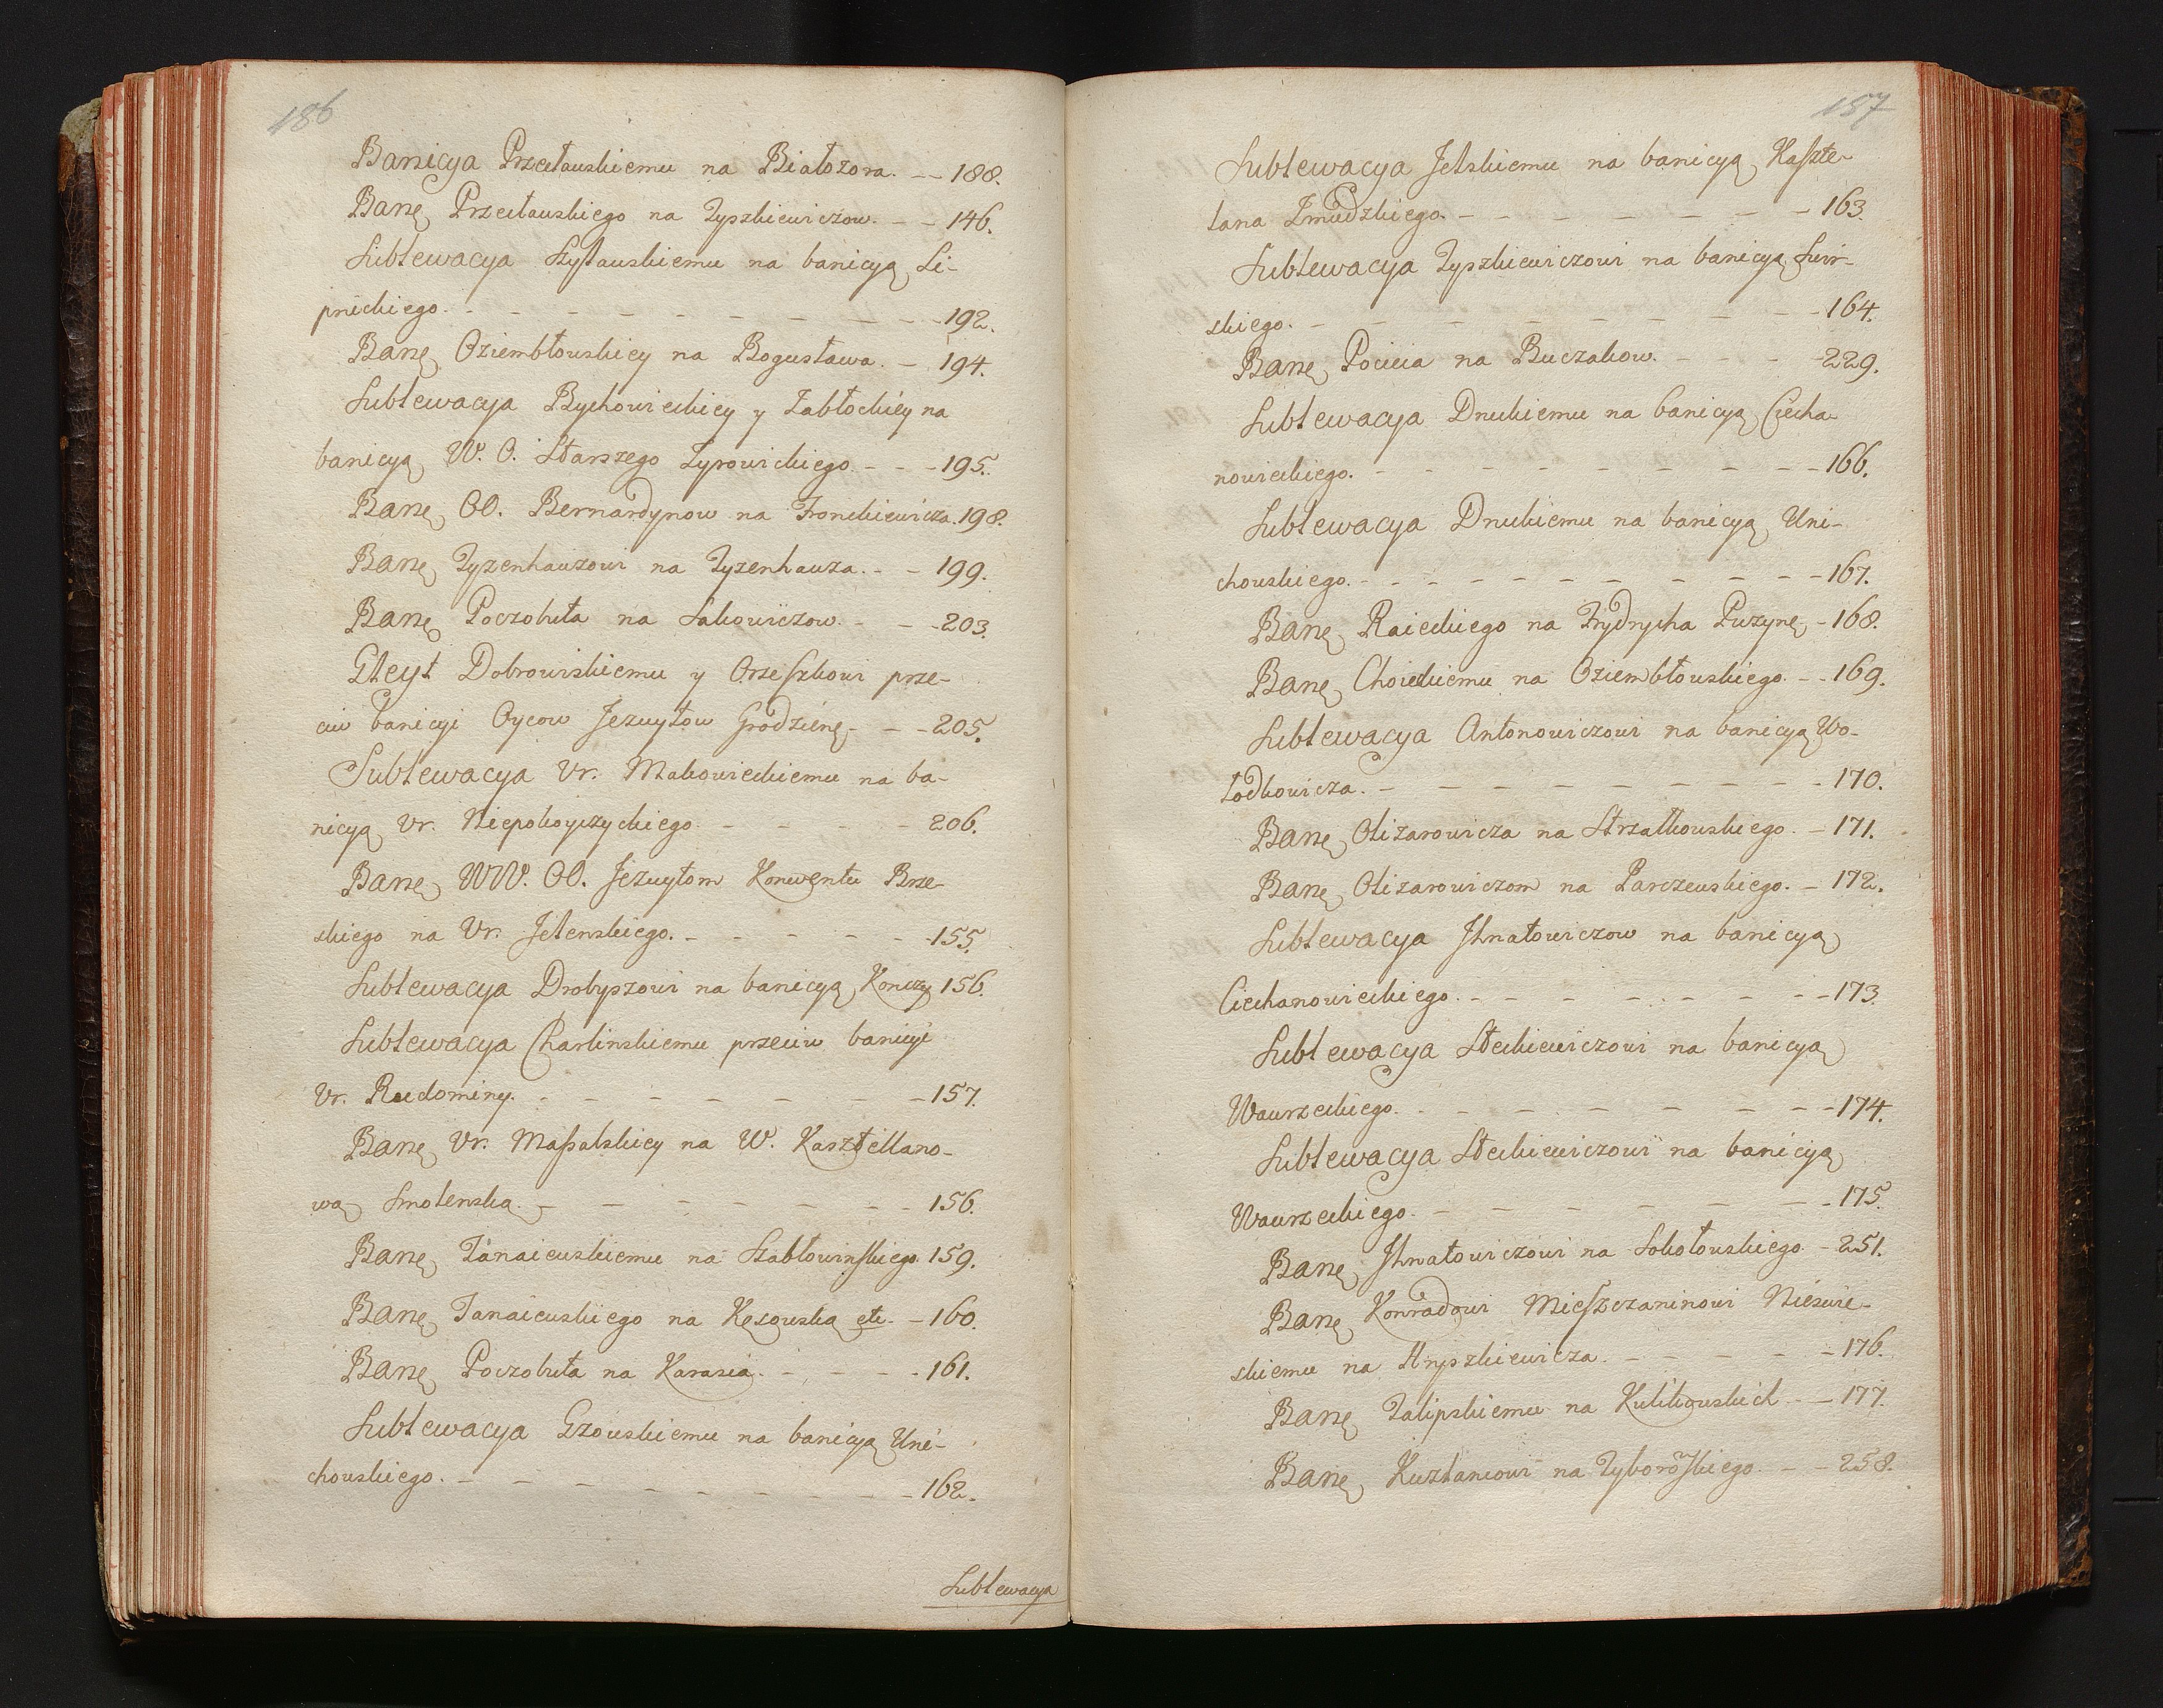 186
Banicya Przecławskiemu na Białozora. - - 188.
Banę Przecławskiego na Tyszkiewiczow. - - 146.
Sublewacya Szystawskiemu na banicyą Li-
pnickiego. - - - - - - - - - 192.
Banę Oziembłowskiey na Bogusława. - 194.
Sublewacya Bychowieckiey y Zabłockiey na
banicyą W. O. Starszego Zyrowickiego. - - - 195.
Banę OO. Bernardynow na Fronckiewicza. 198.
Banę Tyzenhauzowi na Tyzenhauza. - - 199.
Banę Poczobuta na Sakowiczow. - - - 203.
Gleyt Dobrowiskiemu y Orzeszkowi prze-
ciw banicyi Oycow Jezuytow Grodzienę. - - - 205.
Sublewacya Ur. Makowieckiemu na ba-
nicyą Ur. Niepokoyczyckiego - - - - 206.
Banę WW. OO. Jezuytom Konwentu Brze-
skiego na Ur. Jelenskiego. - - - - - - 155.
Sublewacya Drobyszowi na banicyą Konczy 156.
Sublewacya Charlinskiemu przeciw banicyi
Ur. Rudominy. - - - - - - - - 157.
Banę Ur. Massalskiey na W. Kasztellano-
wą Smolenską. - - - - - - - - 156.
Banę Tanaiewskiemu na Szabłowinskiego 159.
Banę Tanaiewskiego na Kęsowską etc. - 160.
Banę Poczobuta na Karasia. - - - - 161.
Sublewacya Gzowskiemu na banicyą Uni-
chowskiego. - - - - - - - - - 162.
Sublewacya
187
Sublewacya Jelskiemu na banicyą Kaszte-
lana Zmudzkiego. - - - - - - - - 163.
Sublewacya Tyszkiewiczowi na banicyą Swir-
skiego. - - - - - - - - - - 164.
Banę Pocieia na Buczakow. - - - - 229.
Sublewacya Druckiemu na banicyą Ciecha-
nowieckiego. - - - - - - - - - - 166.
Sublewacya Druckiemu na banicyą Uni-
chowskiego. - - - - - - - - - - - 167.
Banę Raieckiego na Frydrycha Puzynę. - 168.
Banę Choieckiemu na Oziembłowskiego. - - 169.
Sublewacya Antonowiczowi na banicyą Wo-
łodkowicza. - - - - - - - - - - 170.
Banę Olizarowicza na Strzałkowskiego. - 171.
Banę Olizarowiczom na Parczewskiego. - 172.
Sublewacya Ihnatowiczow na banicyą
Ciechanowieckiego. - - - - - - - - 173.
Sublewacya Steckiewiczowi na banicyą
Wawrzeckiego. - - - - - - - - - 174.
Sublewacya Steckiewiczowi na banicyą
Wawrzeckiego. - - - - - - - - 175.
Banę Ihnatowiczowi na Sokołowskiego - 251.
Banę Konradowi Mieszczaninowi Nieswie-
skiemu na Hryszkiewicza. - - - - - 176.
Banę Zalipskiemu na Kulikowskich. - - 177.
Banę Kuszlanowi na Zyborõskiego. - - 258.